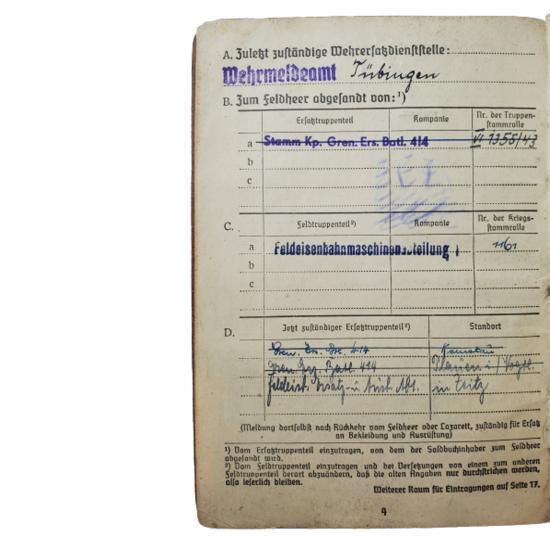 A. Zuletzt zuständige Wehrersatzdienststelle:
Wehrmeldeamt Tübingen
B. Zum Feldheer abgesandt von: ¹)
Ersatztruppenteil Kompanie Nr. der Truppen-
stammrolle
a Stamm Kp. Gren. Ers. Batl. 414 VI 1355/43
b
c
C. Feldtruppenteil ²) Kompanie Nr. der Kriegs-
stammrolle
a Feldeisenbahnmaschinenabteilung 1
b
c
D. Jetzt zuständiger Ersatztruppenteil ²) Standort
Gren. Ers. Btl. 414
Batl. 414 Plauen i/Vogtl.
Feldeisb. Ersatz- u. Abt. in
(Meldung dortselbst nach Rückkehr vom Feldheer oder Lazarett, zuständig für Ersatz
an Bekleidung und Ausrüstung)
¹) Vom Ersatztruppenteil einzutragen, von dem der Soldbuchinhaber zum Feldheer
abgesandt wird.
²) Vom Feldtruppenteil einzutragen und bei Versetzungen von einem zum anderen
Feldtruppenteil derart abzuändern, daß die alten Angaben nur durchstrichen werden,
also leserlich bleiben.
Weiterer Raum für Eintragungen auf Seite 17.
4